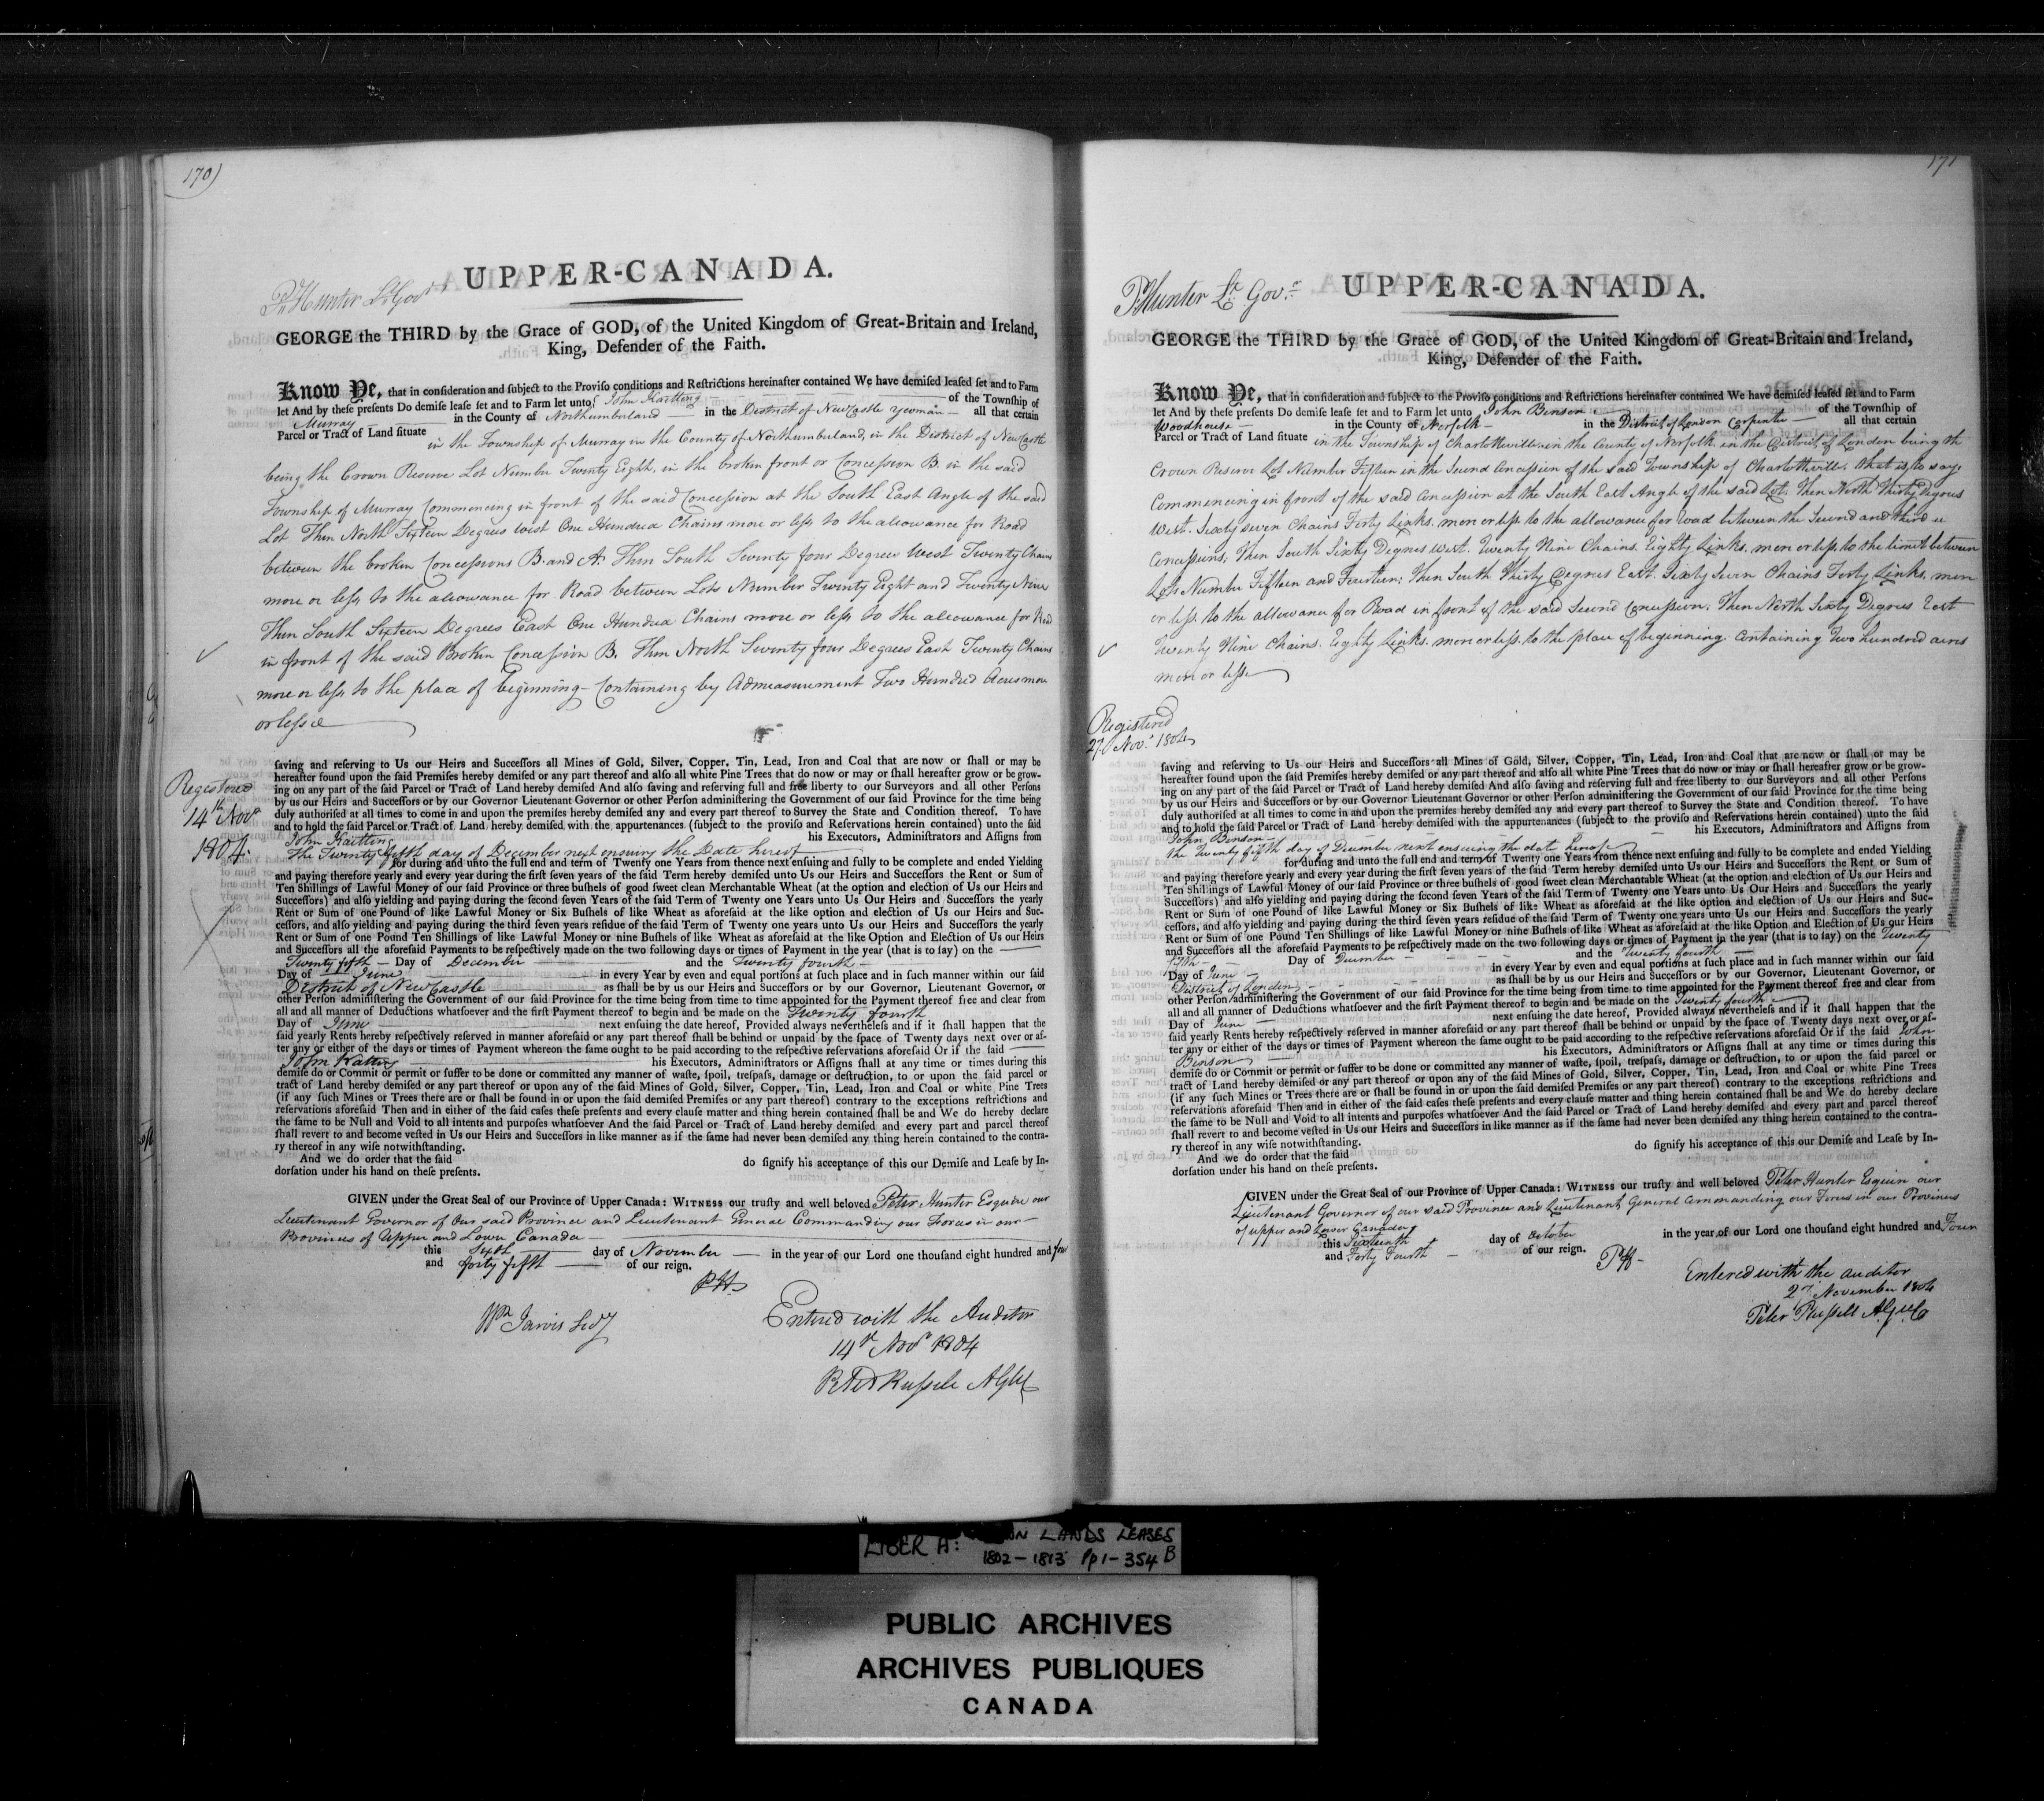 170)
P. Hunter Lt Govr
UPPER-CANADA.
GEORGE the THIRD by the Grace of GOD, of the United Kingdom of Great-Britain and Ireland,
King, Defender of the Faith.
Know Ye, that in conſideration and ſubject to the Proviſo conditions and Reſtrictions hereinafter contained We have demiſed leaſed ſet and to Farm
let And by theſe preſents Do demiſe leaſe ſet and to Farm let unto John Kaitting of the Townſhip of
Murray in the County of Northumberland in the District of NewCastle yeoman all that certain
Parcel or Tract of Land ſituate in the Township of Murray in the County of Northumberland, in the District of NewCastle
being the Crown Reserve Lot Number Twenty Eight, in the broken front or Concession B. in the said
Township of Murray Commencing in front of the said Concession at the South East Angle of the said
Lot Then North Sixteen Degrees West One Hundred Chains more or less to the allowance for Road
between the broken Concessions B. and A. Then South Seventy four Degrees West Twenty Chains
more or less to the allowance for Road between Lots Number Twenty Eight and Twenty Nine
Then South Sixteen Degrees East One Hundred Chains more or less to the allowance for Road
in front of the said Broken Concession B. Then North Seventy four Degrees East Twenty Chains
more or less to the place of beginning - Containing by Admeasurement Two Hundred Acres more
or less
Registered
14th Novr
1804.
ſaving and reſerving to Us our Heirs and Succeſſors all Mines of Gold, Silver, Copper, Tin, Lead, Iron and Coal that are now or ſhall or may be
hereafter found upon the ſaid Premiſes hereby demiſed or any part thereof and alſo all white Pine Trees that do now or may or ſhall hereafter grow or be grow-
ing on any part of the ſaid Parcel or Tract of Land hereby demiſed And alſo ſaving and reſerving full and free liberty to our Surveyors and all other Perſons
by us our Heirs and Succeſſors or by our Governor Lieutenant Governor or other Perſon adminiſtering the Government of our ſaid Province for the time being
duly authoriſed at all times to come in and upon the premiſes hereby demiſed any and every part thereof to Survey the State and Condition thereof. To have
and to hold the ſaid Parcel or Tract of Land hereby demiſed with the appurtenances (subject to the proviſo and Reſervations herein contained) unto the ſaid
John Kaitting his Executors, Adminiſtrators and Aſſigns from
The Twenty fifth day of December next ensuing the Date hereof
for during and unto the full end and term of Twenty one Years from thence next enſuing and fully to be complete and ended Yielding
and paying therefore yearly and every year during the firſt ſeven years of the ſaid Term hereby demiſed unto Us our Heirs and Succeſſors the Rent or Sum of
Ten Shillings of Lawful Money of our ſaid Province or three buſhels of good ſweet clean Merchantable Wheat (at the option and election of Us our Heirs and
Succeſſors) and alſo yielding and paying during the ſecond ſeven Years of the ſaid Term of Twenty one Years unto Us Our Heirs and Succeſſors the yearly
Rent or Sum of one Pound of like Lawful Money or Six Buſhels of like Wheat as aforeſaid at the like option and election of Us our Heirs and Suc-
ceſſors, and alſo yielding and paying during the third ſeven years reſidue of the ſaid Term of Twenty one years unto Us our Heirs and Succeſſors the yearly
Rent or Sum of one Pound Ten Shillings of like Lawful Money or nine Buſhels of like Wheat as aforeſaid at the like Option and Election of Us our Heirs
and Succeſſors all the aforeſaid Payments to be reſpectively made on the two following days or times of Payment in the year (that is to ſay) on the
Twenty fifth Day of December and the Twenty fourth
Day of June in every Year by even and equal portions at ſuch place and in ſuch manner within our ſaid
District of NewCastle as ſhall be by us our Heirs and Succeſſors or by our Governor, Lieutenant Governor, or
other Perſon adminiſtering the Government of our ſaid Province for the time being from time to time appointed for the Payment thereof free and clear from
all and all manner of Deductions whatſoever and the firſt Payment thereof to begin and be made on the Twenty fourth
Day of June next enſuing the date hereof, Provided always nevertheleſs and if it ſhall happen that the
ſaid yearly Rents hereby reſpectively reſerved in manner aforeſaid or any part thereof ſhall be behind or unpaid by the ſpace of Twenty days next over or af-
ter any or either of the days or times of Payment whereon the ſame ought to be paid according to the reſpective reſervations aforeſaid Or if the ſaid
John Katting his Executors, Adminiſtrators or Aſſigns ſhall at any time or times during this
demiſe do or Commit or permit or ſuffer to be done or committed any manner of waſte, ſpoil, treſpaſs, damage or deſtruction, to or upon the ſaid parcel or
tract of Land hereby demiſed or any part thereof or upon any of the ſaid Mines of Gold, Silver, Copper, Tin, Lead, Iron and Coal or white Pine Trees
(if any ſuch Mines or Trees there are or ſhall be found in or upon the ſaid demiſed Premiſes or any part thereof) contrary to the exceptions reſtrictions and
reſervations aforeſaid Then and in either of the ſaid caſes theſe preſents and every clauſe matter and thing herein contained ſhall be and We do hereby declare
the ſame to be Null and Void to all intents and purpoſes whatſoever And the ſaid Parcel or Tract of Land hereby demiſed and every part and parcel thereof
ſhall revert to and become veſted in Us our Heirs and Succeſſors in like manner as if the ſame had never been demiſed any thing herein contained to the contra-
ry thereof in any wiſe notwithſtanding.
And we do order that the ſaid do ſignify his acceptance of this our Demiſe and Leaſe by In-
dorſation under his hand on theſe preſents.
GIVEN under the Great Seal of our Province of Upper Canada: WITNESS our truſty and well beloved Peter Hunter Esquire our
Lieutenant Governor of Our said Province and Lieutenant General Commanding our Forces in our
Provinces of Upper and Lower Canada
this Sixth day of November in the year of our Lord one thouſand eight hundred and four
and forty fifth of our reign.
P.H.
Wm Jarvis Secy
Entered with the Auditor
14th Novr 1804
Peter Russell AGl
171
P Hunter Lt. Govr.
UPPER-CANADA.
GEORGE the THIRD by the Grace of GOD, of the United Kingdom of Great-Britain and Ireland,
King, Defender of the Faith.
Know Ye, that in conſideration and ſubject to the Proviſo conditions and Reſtrictions hereinafter contained We have demiſed leaſed ſet and to Farm
let And by theſe preſents Do demiſe leaſe ſet and to Farm let unto John Benson of the Townſhip of
Woodhouse in the County of Norfolk in the District of London Carpenter all that certain
Parcel or Tract of Land ſituate in the Township of Charlotteville in the County of Norfolk in the District of London being the
Crown Reserve Lot Number Fifteen in the Second Concession of the said Township of Charlotteville. that is to say,
Commencing in front of the said Concession at the South East Angle of the said Lot; Then North Thirty Degrees
West. Sixty seven Chains Forty Links. more or less to the allowance for Road between the Second and third
Concessions; Then South Sixty Degrees West. Twenty Nine Chains. Eighty Links. more or less to the limit between
Lots Number Fifteen and Fourteen; Then South Thirty Degrees East. Sixty Seven Chains Forty Links. more
or less to the allowance for Road in front of the said Second Concession. Then North Sixty Degrees East
Twenty Nine Chains. Eighty Links. more or less. to the place of beginning. Containing Two hundred acres
more or less
Registered
27 Novr. 1804
ſaving and reſerving to Us our Heirs and Succeſſors all Mines of Gold, Silver, Copper, Tin, Lead, Iron and Coal that are now or ſhall or may be
hereafter found upon the ſaid Premiſes hereby demiſed or any part thereof and alſo all white Pine Trees that do now or may or ſhall hereafter grow or be grow-
ing on any part of the ſaid Parcel or Tract of Land hereby demiſed And alſo ſaving and reſerving full and free liberty to our Surveyors and all other Perſons
by us our Heirs and Succeſſors or by our Governor Lieutenant Governor or other Perſon adminiſtering the Government of our ſaid Province for the time being
duly authoriſed at all times to come in and upon the premiſes hereby demiſed any and every part thereof to Survey the State and Condition thereof. To have
and to hold the ſaid Parcel or Tract of Land hereby demiſed with the appurtenances (subject to the proviſo and Reſervations herein contained) unto the ſaid
John Benson his Executors, Adminiſtrators and Aſſigns from
the Twenty fifth day of December next ensuing the date hereof
for during and unto the full end and term of Twenty one Years from thence next enſuing and fully to be complete and ended Yielding
and paying therefore yearly and every year during the firſt ſeven years of the ſaid Term hereby demiſed unto Us our Heirs and Succeſſors the Rent or Sum of
Ten Shillings of Lawful Money of our ſaid Province or three buſhels of good ſweet clean Merchantable Wheat (at the option and election of Us our Heirs and
Succeſſors) and alſo yielding and paying during the ſecond ſeven Years of the ſaid Term of Twenty one Years unto Us Our Heirs and Succeſſors the yearly
Rent or Sum of one Pound of like Lawful Money or Six Buſhels of like Wheat as aforeſaid at the like option and election of Us our Heirs and Suc-
ceſſors, and alſo yielding and paying during the third ſeven years reſidue of the ſaid Term of Twenty one years unto Us our Heirs and Succeſſors the yearly
Rent or Sum of one Pound Ten Shillings of like Lawful Money or nine Buſhels of like Wheat as aforeſaid at the like Option and Election of Us our Heirs
and Succeſſors all the aforeſaid Payments to be reſpectively made on the two following days or times of Payment in the year (that is to ſay) on the Twenty
fifth Day of December and the Twenty fourth
Day of June in every Year by even and equal portions at ſuch place and in ſuch manner within our ſaid
District of London as ſhall be by us our Heirs and Succeſſors or by our Governor, Lieutenant Governor, or
other Perſon adminiſtering the Government of our ſaid Province for the time being from time to time appointed for the Payment thereof free and clear from
all and all manner of Deductions whatſoever and the firſt Payment thereof to begin and be made on the Twenty fourth
Day of June next enſuing the date hereof, Provided always nevertheleſs and if it ſhall happen that the
ſaid yearly Rents hereby reſpectively reſerved in manner aforeſaid or any part thereof ſhall be behind or unpaid by the ſpace of Twenty days next over or af-
ter any or either of the days or times of Payment whereon the ſame ought to be paid according to the reſpective reſervations aforeſaid Or if the ſaid John
Benson his Executors, Adminiſtrators or Aſſigns ſhall at any time or times during this
demiſe do or Commit or permit or ſuffer to be done or committed any manner of waſte, ſpoil, treſpaſs, damage or deſtruction, to or upon the ſaid parcel or
tract of Land hereby demiſed or any part thereof or upon any of the ſaid Mines of Gold, Silver, Copper, Tin, Lead, Iron and Coal or white Pine Trees
(if any ſuch Mines or Trees there are or ſhall be found in or upon the ſaid demiſed Premiſes or any part thereof) contrary to the exceptions reſtrictions and
reſervations aforeſaid Then and in either of the ſaid caſes theſe preſents and every clauſe matter and thing herein contained ſhall be and We do hereby declare
the ſame to be Null and Void to all intents and purpoſes whatſoever And the ſaid Parcel or Tract of Land hereby demiſed and every part and parcel thereof
ſhall revert to and become veſted in Us our Heirs and Succeſſors in like manner as if the ſame had never been demiſed any thing herein contained to the contra-
ry thereof in any wiſe notwithſtanding.
And we do order that the ſaid do ſignify his acceptance of this our Demiſe and Leaſe by In-
dorſation under his hand on theſe preſents.
GIVEN under the Great Seal of our Province of Upper Canada: WITNESS our truſty and well beloved Peter Hunter Esquire our
Lieutenant Governor of our said Province and Lieutenant General Commanding our Forces in our Provinces
of upper and Lower Canada
this Sixteenth day of October in the year of our Lord one thouſand eight hundred and Four
and Forty Fourth of our reign.
PH
Entered with the auditor
2d November 1804
Peter Russell
LIBER A: LANDS LEASES
1802-1813 Pp 1-354 B
PUBLIC ARCHIVES
ARCHIVES PUBLIQUES
CANADA